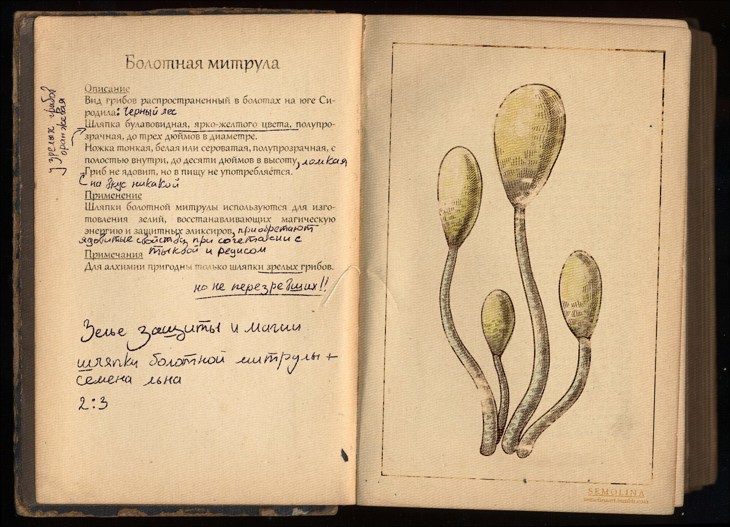 Болотная митрула
Описание
Вид грибов распространенный в болотах на юге Си-
родила: Черный лес
Шляпка булавовидная, ярко-желтого цвета, полупро-
зрачная, до трех дюймов в диаметре.
у зрелых грибов
оранжевая
Ножка тонкая, белая или сероватая, полупрозрачная, с
полостью внутри, до десяти дюймов в высоту, ломкая
Гриб не ядовит, но в пищу не употребляется.
на вкус никакой
Применение
Шляпки болотной митрулы используются для изго-
товления зелий, восстанавливающих магическую
энергию и защитных эликсиров, приобретают
ядовитые свойства при сочетании с
тыквой и редисом
Примечания
Для алхимии пригодны только шляпки зрелых грибов.
но не перезревших!!
Зелье защиты и магии
шляпки болотной митрулы +
семена льна
2:3
SEMOLINA